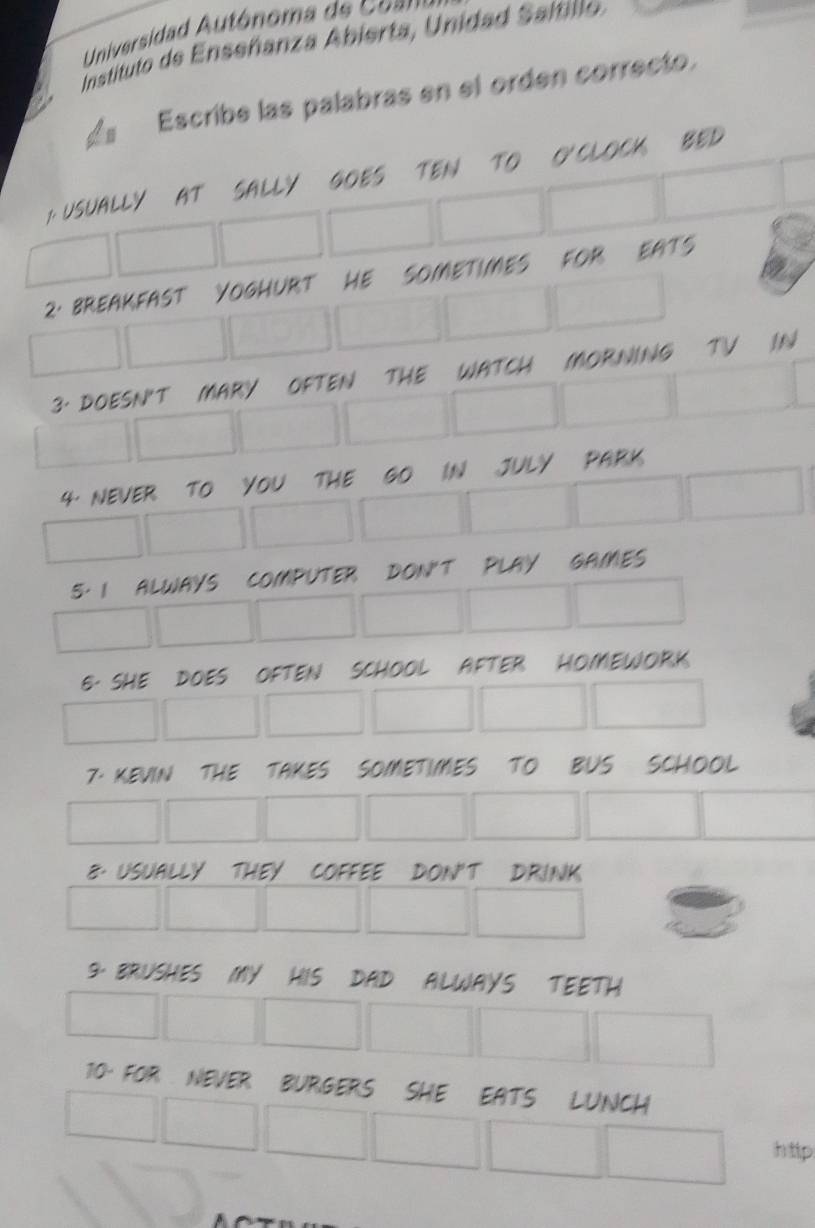 Universidad Autónoma de
Instituto de Enseñanza Abierta, Unidad Saltillo.
Escribe las palabras en el orden correcto.
1. USUALLY AT SALLY GOES TEN TO O'CLOCK BED
2. BREAKFAST YOGHURT HE SOMETIMES FOR EATS
3. DOESN'T MARY OFTEN THE WATCH MORNING TV IN
4. NEVER TO YOU THE GO IN JULY PARK
5. I ALWAYS COMPUTER DON'T PLAY GAMES
6. SHE DOES OFTEN SCHOOL AFTER HOMEWORK
7. KEVIN THE TAKES SOMETIMES TO BUS SCHOOL
8. USUALLY THEY COFFEE DON'T DRINK
9. BRUSHES MY HIS DAD ALWAYS TEETH
10. FOR NEVER BURGERS SHE EATS LUNCH
http